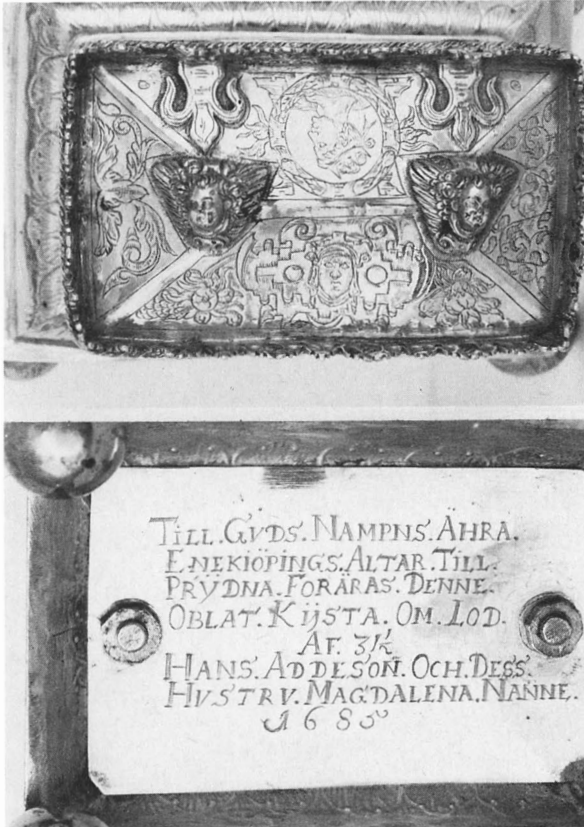 TILL. GVDS. NAMPNS. ÄHRA.
ENEKIÖPINGS. ALTAR. TILL.
PRŸDNA. FORÄRAS. DENNE.
OBLAT. KIJSTA. OM. LOD.
AF. 3½
HANS. ADDESON. OCH. DESS.
HVSTRV. MAGDALENA. NANNE.
1685